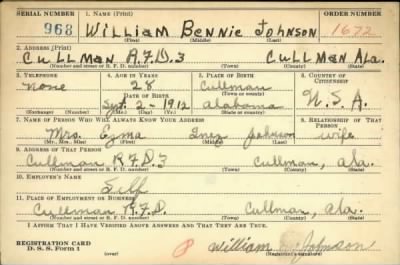 SERIAL NUMBER 1. NAME (Print) ORDER NUMBER
968 William Bennie Johnson 1672
(First) (Middle) (Last)
2. ADDRESS (Print)
Cullman R.F.D.3 Cullman Ala.
(Number and street or R. F. D. number) (Town) (County) (State)
3. TELEPHONE 4. AGE IN YEARS 5. PLACE OF BIRTH 6. COUNTRY OF CITIZENSHIP
none 28 Cullman
DATE OF BIRTH (Town or county)
Sept. 2-1912 Alabama U.S.A.
(Exchange) (Number) (Mo.) (Day) (Yr.) (State or country)
7. NAME OF PERSON WHO WILL ALWAYS KNOW YOUR ADDRESS 8. RELATIONSHIP OF THAT PERSON
Mrs. Inez Johnson wife
(Mr., Mrs., Miss) (First) (Middle) (Last)
9. ADDRESS OF THAT PERSON
Cullman R.F.D.3 Cullman, Ala.
(Number and street or R. F. D. number) (Town) (County) (State)
10. EMPLOYER'S NAME
Self
11. PLACE OF EMPLOYMENT OR BUSINESS
Cullman R.F.D. Cullman, Ala.
(Number and street or R. F. D. number) (Town) (County) (State)
I AFFIRM THAT I HAVE VERIFIED ABOVE ANSWERS AND THAT THEY ARE TRUE.
REGISTRATION CARD
D. S. S. Form 1 William Johnson
(Registrant's signature)